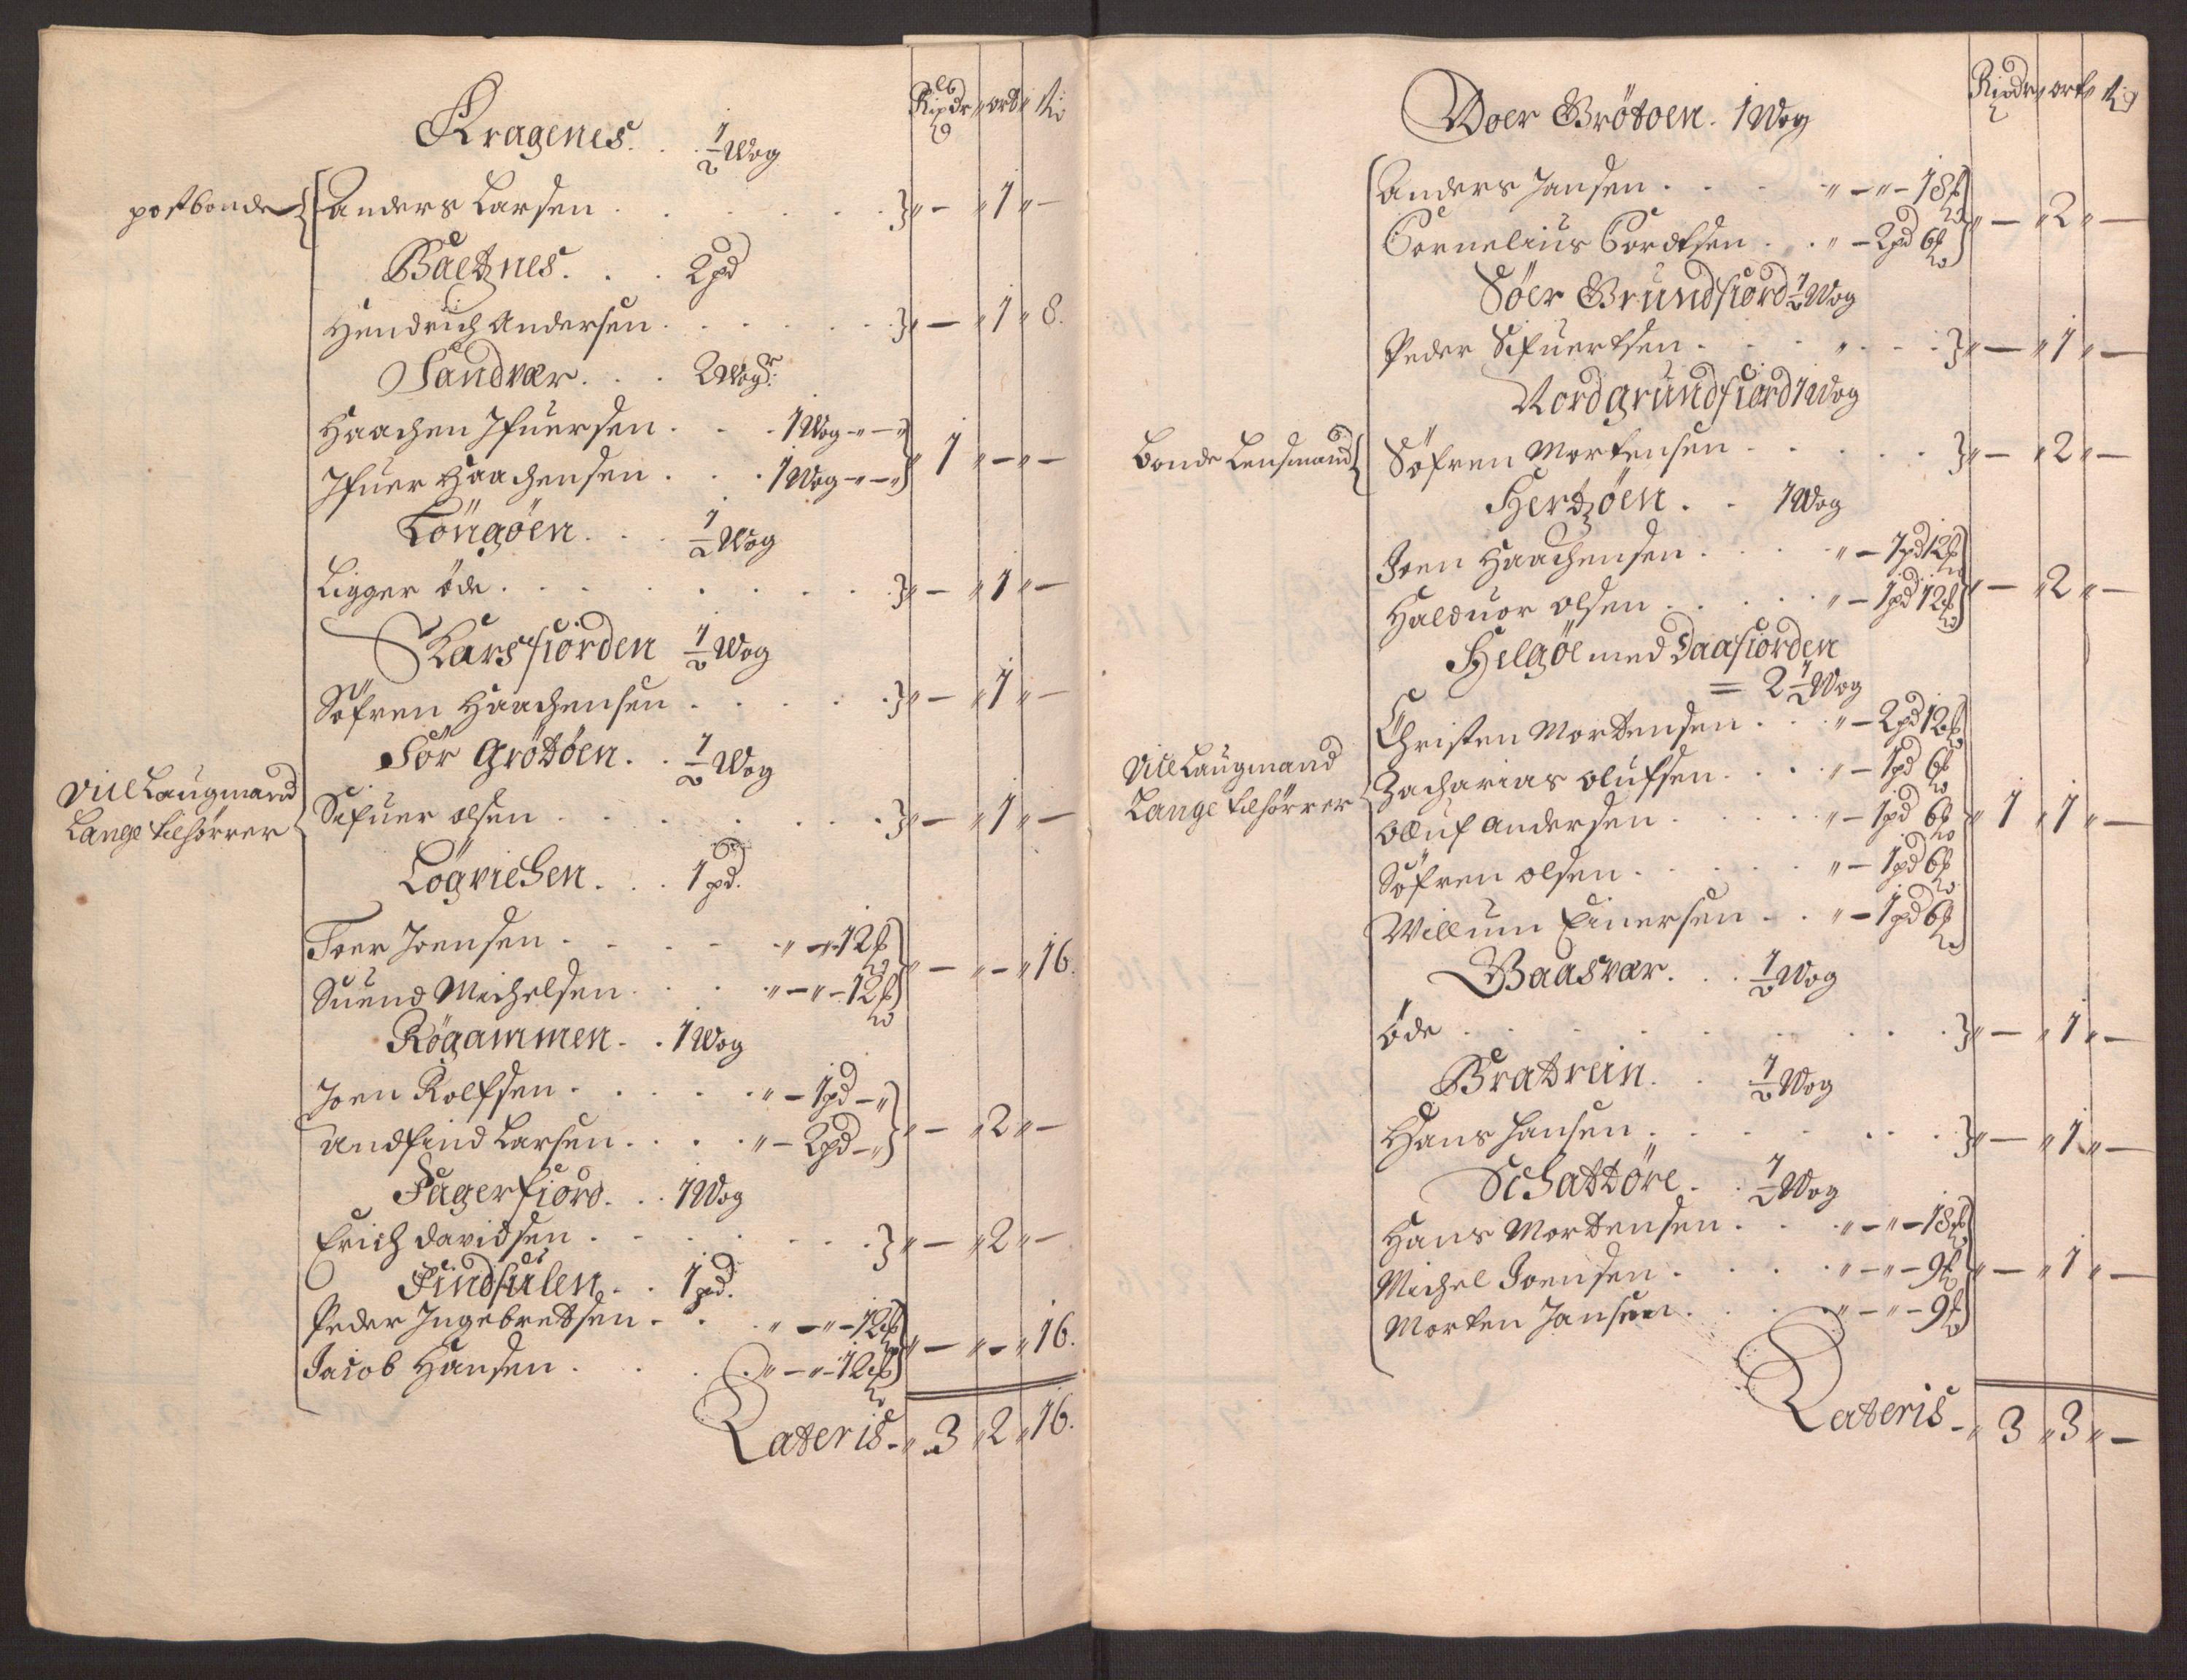 Ripdr ort ß
Kragenes. . . 1/2 Wog
postbonde { Anders Larsen . . . . . . } " — " 1 " —
Baetznes. . . 2 pd
Hendrich Andersen . . . . . . } " — " 1 " 8.
Sandvær. . . 2 Wogr:
Haachen Ifuersen . . . 1 Wog - " — "
Ifuer Haachensen . . . 1 Wog - " — " } " 1 " — " —
Löngöen. . . 1/2 Wog
Ligger öde . . . . . . . } " — " 1 " —
Skarsfiorden 1/2 Wog
Söfren Haachensen . . . . . } " — " 1 " —
Sör Grötöen. . 1/2 Wog
Vice Laugmand
Lange tilhörrer { Sifuer Olsen . . . . . . . } " — " 1 " —
Lögvichen. . . 1 pd.
Toer Joensen . . . . . " — " 12 ß
Suend Michelsen . . . . " — " — 12 ß } " — " — " 16.
Rögammen. . 1 Wog
Joen Rolfsen . . . . . " — 1 pd — "
Andfind Larsen . . . . " — 2 pd — " } " — " 2 " —
Fagerfiord. . . 1 Wog
Erich Davidsen . . . . . . } " — " 2 " —
Findhulen. . . 1 pd.
Peder Ingebretsen . . . " — " — 12 ß
Jacob Hansen . . . . " — " — 12 ß } " — " — " 16.
Lateris — " 3 " 2 " 16.
Ripdr ort ß
Woer Grötoen. 1 Wog
Anders Jansen . . . . " — " — 18 ß
Cornelius Cordtsen . . " — 2 pd 6 ß } " — " 2 " —
Söer Grundfiord 1/2 Wog
Peder Sifuertsen . . . . . . } " — " 1 " —
Nordgrundfiord 1 Wog
Bonde Lensmand { Söfren Mortensen . . . . . } " — " 2 " —
Hertzöen. . . 1 Wog
Joen Haachensen . . . . " — 1 pd 12 ß
Halduor Olsen . . . . . " — 1 pd 12 ß } " — " 2 " —
Helgöe med Daafiorden
= 2 1/2 Wog
Christen Mortensen . . . " — 2 pd 12 ß
Vice Laugmand
Lange tilhörrer { Zacharias Olufsen . . . " — 1 pd 6 ß
Oluf Andersen . . . . . " — 1 pd 6 ß } " 1 " 1 " —
Söfren Olsen . . . . . " — 1 pd 6 ß
Willum Einersen . . . " — 1 pd 6 ß
Baasvær. . . 1/2 Wog
Öde . . . . . . . . } " — " 1 " —
Bratrein. . . 1/2 Wog
Hans Hansen . . . . . . } " — " 1 " —
Schattöre. . 1/2 Wog
Hans Mortensen . . . " — " — 18 ß
Michel Joensen . . . . " — " — 9 ß } " — " 1 " —
Morten Jansen . . . . " — " — 9 ß
Lateris — " 3 " 3 " —